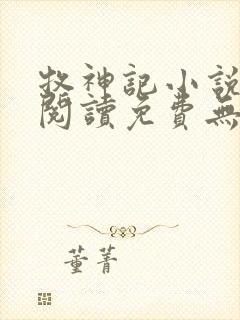 牧神記小說
閱讀免費無
董菁